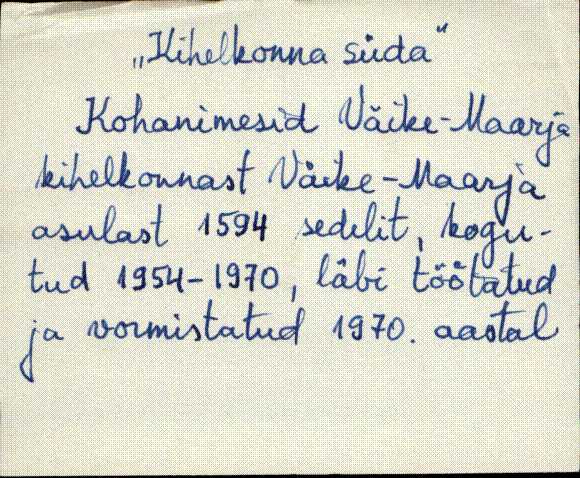 „Kihelkonna süda“
Kohanimesid Väike-Maarja
kihelkonnast Väike-Maarja
asulast 1594 sedelit, kogu-
tud 1954-1970, läbi töötatud
ja vormistatud 1970. aastal